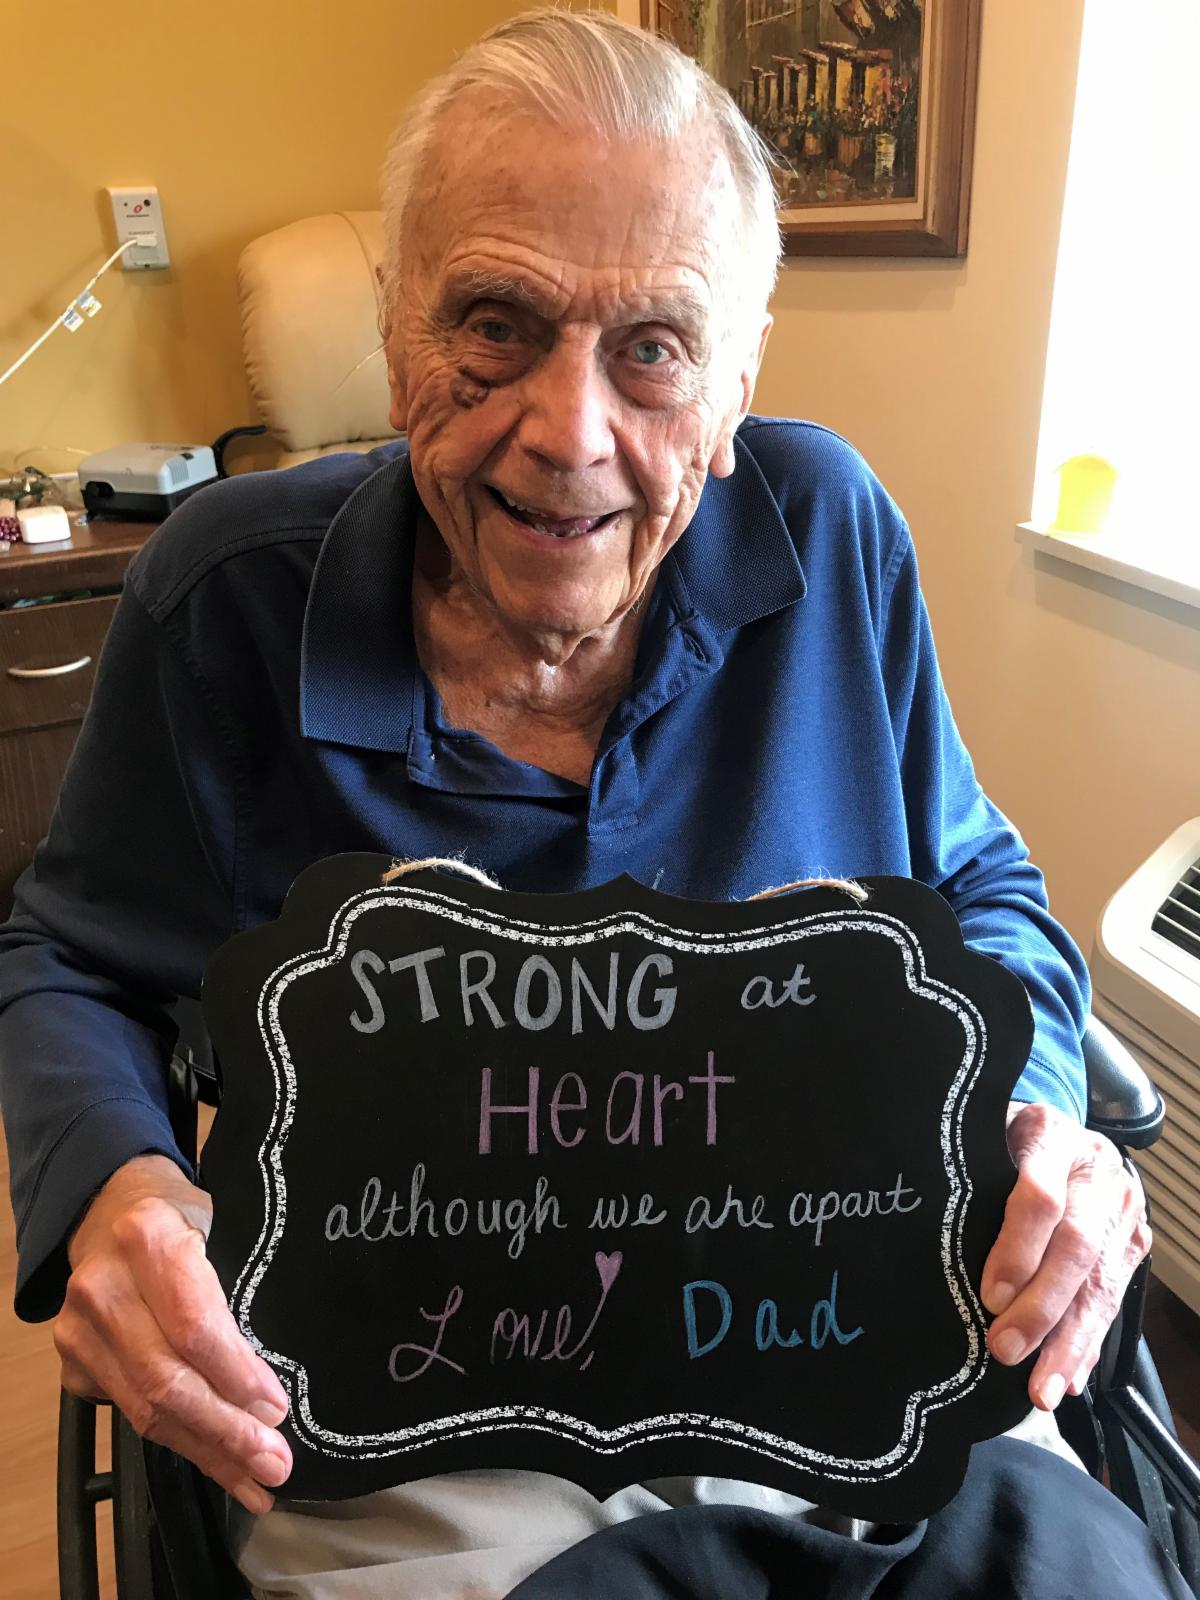 STRONG at
Heart
although we are apart
Love, Dad